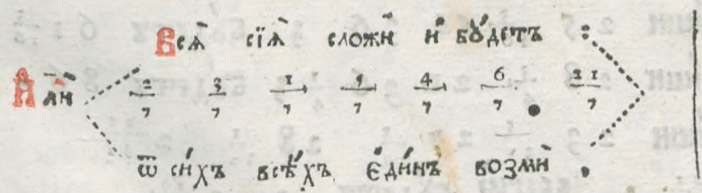 Всѧ̀ сїѧ̀ сложѝ и҆ бꙋ́детъ :
И҆лѝ 2/7 3/7 1/7 5/7 4/7 6/7 21/7
ѿ си́хъ всѣ́хъ є҆ди́нъ возмѝ .